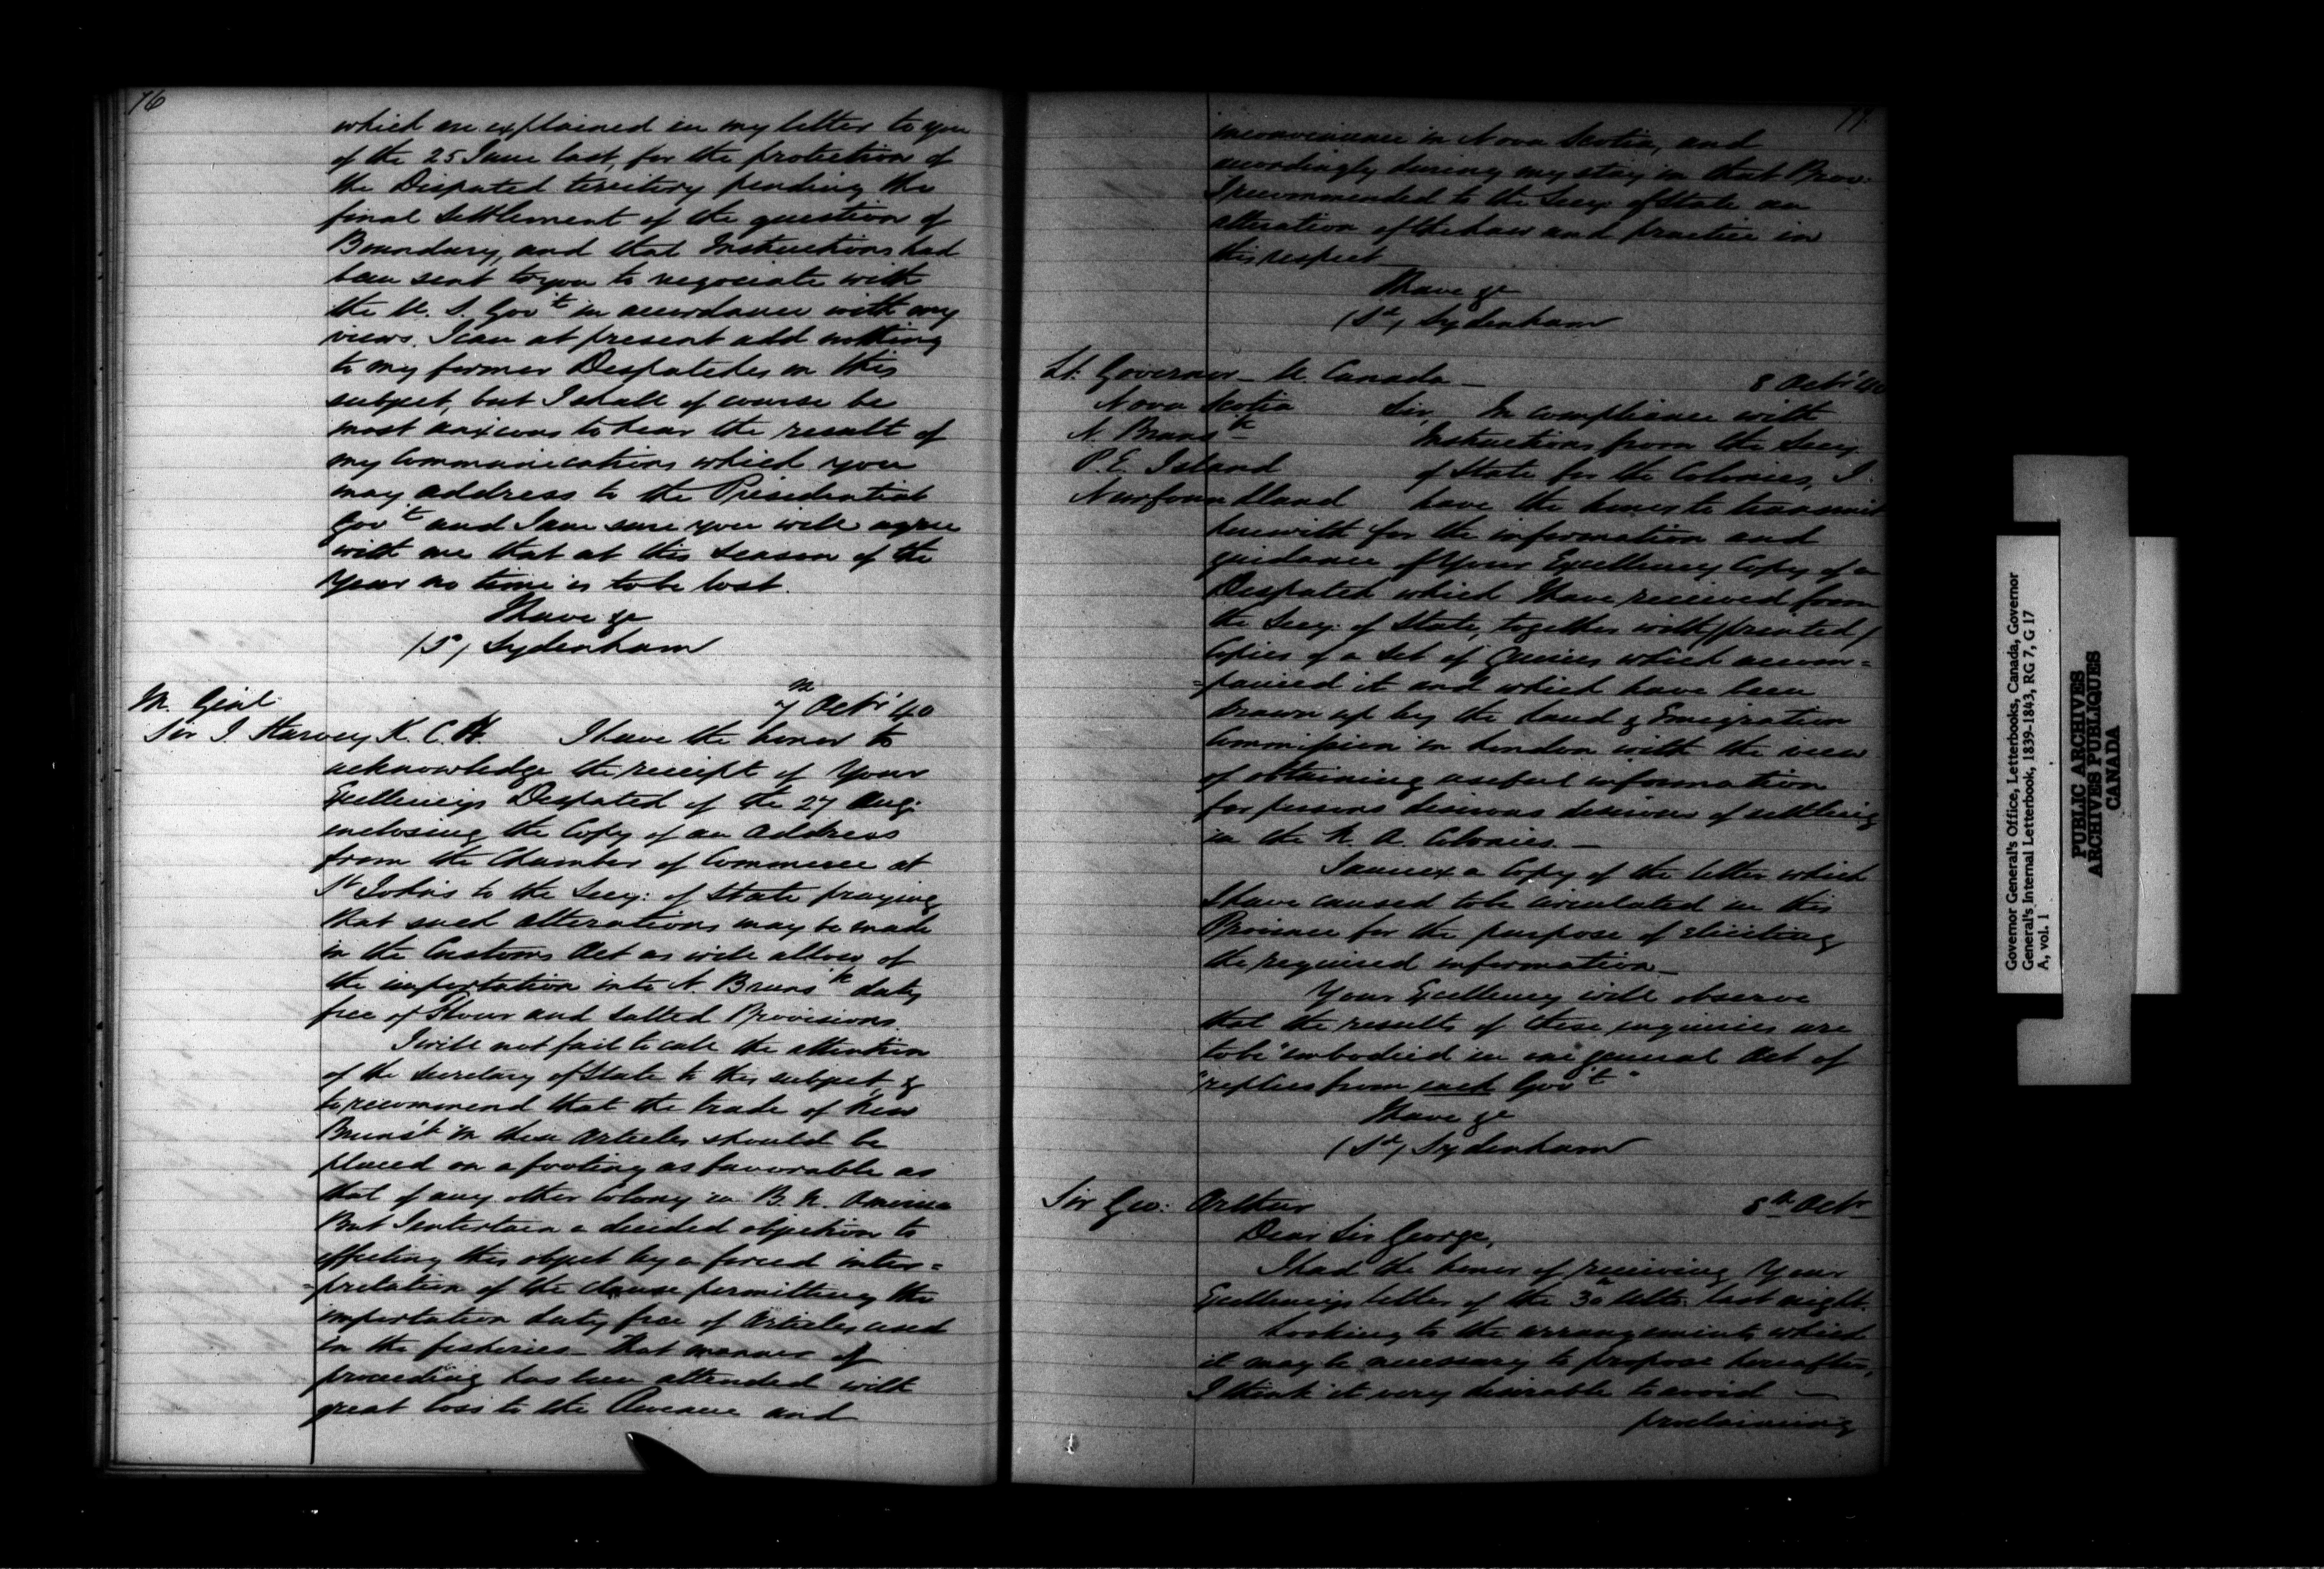 76
which are explained in my letter to you
of the 25 June last, for the protection of
the Disputed territory pending the
final settlement of the question of
Boundary, and that Instructions had
been sent to you to negociate with
the U. S. Govt in accordance with my
views. I can at present add nothing
to my former Despatches on this
subject, but I shall of course be
most anxious to hear the result of
my Communications which you
may address to the Presidential
Govt and I am sure you will agree
with me that at this season of the
year no time is to be lost.
I have &c
(Sd) Sydenham
M. Genl 7th Octr 40
Sir J. Harvey K. C. H. I have the honor to
acknowledge the receipt of Your
Excellency's Despatch of the 27 Aug:
enclosing the Copy of an Address
from the Chamber of Commerce at
St John's to the Secy: of State praying
that such alterations may be made
in the Customs Act as will allow of
the importation into N. Brunsk duty
free of Flour and Salted Provisions
I will not fail to call the attention
of the Secretary of State to this subject &
to recommend that the trade of New
Brunsk in these Articles should be
placed on a footing as favorable as
that of any other Colony in B. N. America
But I entertain a decided objection to
effecting this object by a forced inter=
=pretation of the clause permitting the
importation duty free of Articles used
in the fisheries – that manner of
proceeding has been attended with
great loss to the Revenue and
77
inconvenience in Nova Scotia, and
accordingly during my stay in that Prov:
I recommended to the Secy: of State an
alteration of the law and practice in
this respect
I have &c
(Sd) Sydenham
Lt. Governor – U. Canada – 8 Octr '40
Nova Scotia Sir, In compliance with
N. Brunsk Instructions from the Secy.
P. E. Island of State for the Colonies, I
Newfoundland have the honor to transmit
herewith for the information and
guidance of Your Excellency Copy of a
Despatch which I have received from
the Secy: of State, together with (printed)
Copies of a Set of Queries which accom=
=panied it and which have been
drawn up by the Land & Emigration
Commission in London with the view
of obtaining useful information
for persons desirous desirous of settling
in the N. A. Colonies. –
I annex a Copy of the letter which
I have caused to be circulated in this
Province for the purpose of eliciting
the required information –
Your Excellency will observe
that the results of these enquiries are
to be "embodied in one general Set of
"replies from each Govt"
I have &c
(Sd) Sydenham
Sir Geo: Arthur 8th Octr
Dear Sir George,
I had the honor of receiving Your
Excellency's letter of the 30 Ulto: last night.
Looking to the arrangements which
it may be necessary to propose hereafter,
I think it very desirable to avoid –
proclaiming
Governor General's Office, Letterbooks, Canada, Governor
General's Internal Letterbook, 1839-1843, RG 7, G 17
A, vol. 1
PUBLIC ARCHIVES
ARCHIVES PUBLIQUES
CANADA